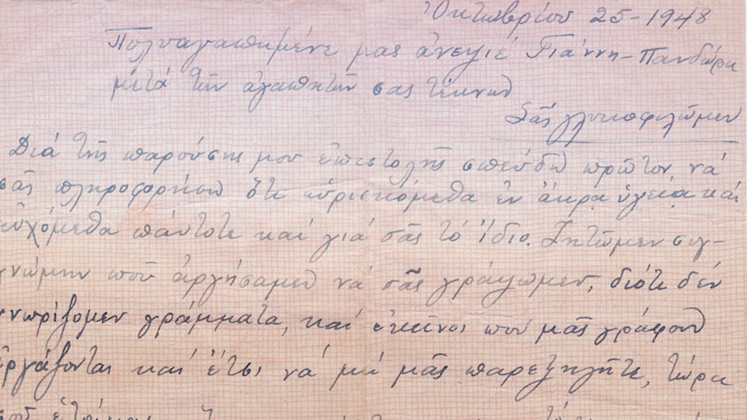 Ὀκτωβρίου 25-1948
Πολυαγαπημένε μας ἀνεψιέ Γιάννη-Πανδώρα
μετά τῶν ἀγαπητῶν σας τέκνων
Σᾶς γλυκοφιλῶμεν
Διά τῆς παρούσης μου ἐπιστολῆς σπεύδω πρῶτον νά
σᾶς πληροφορήσω ὅτι εὑρισκόμεθα ἐν ἄκρᾳ ὑγείᾳ και
εὐχόμεθα πάντοτε καί γιά σᾶς τό ἴδιο. Ζητῶμεν συγ-
γνώμην πού ἀργήσαμεν νά σᾶς γράψωμεν, διότι δέν
γνωρίζομεν γράμματα, καί ἐκεῖνοι πού μᾶς γράφουν
ἐργάζονται καί ἔτσι νά μή μᾶς παρεξηγῆτε, τώρα